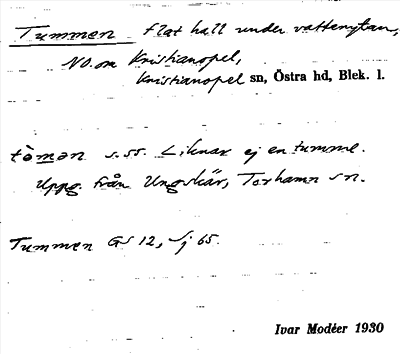 Tummen flat hall under vattenytan,
NO. om Kristianopel,
Kristianopel sn, Östra hd, Blek. l.
tòmən s. ss. Liknar ej en tumme.
Uppg. från Ungskär, Torhamn sn.
Tummen GS 12, Sj 65.
Ivar Modéer 1930